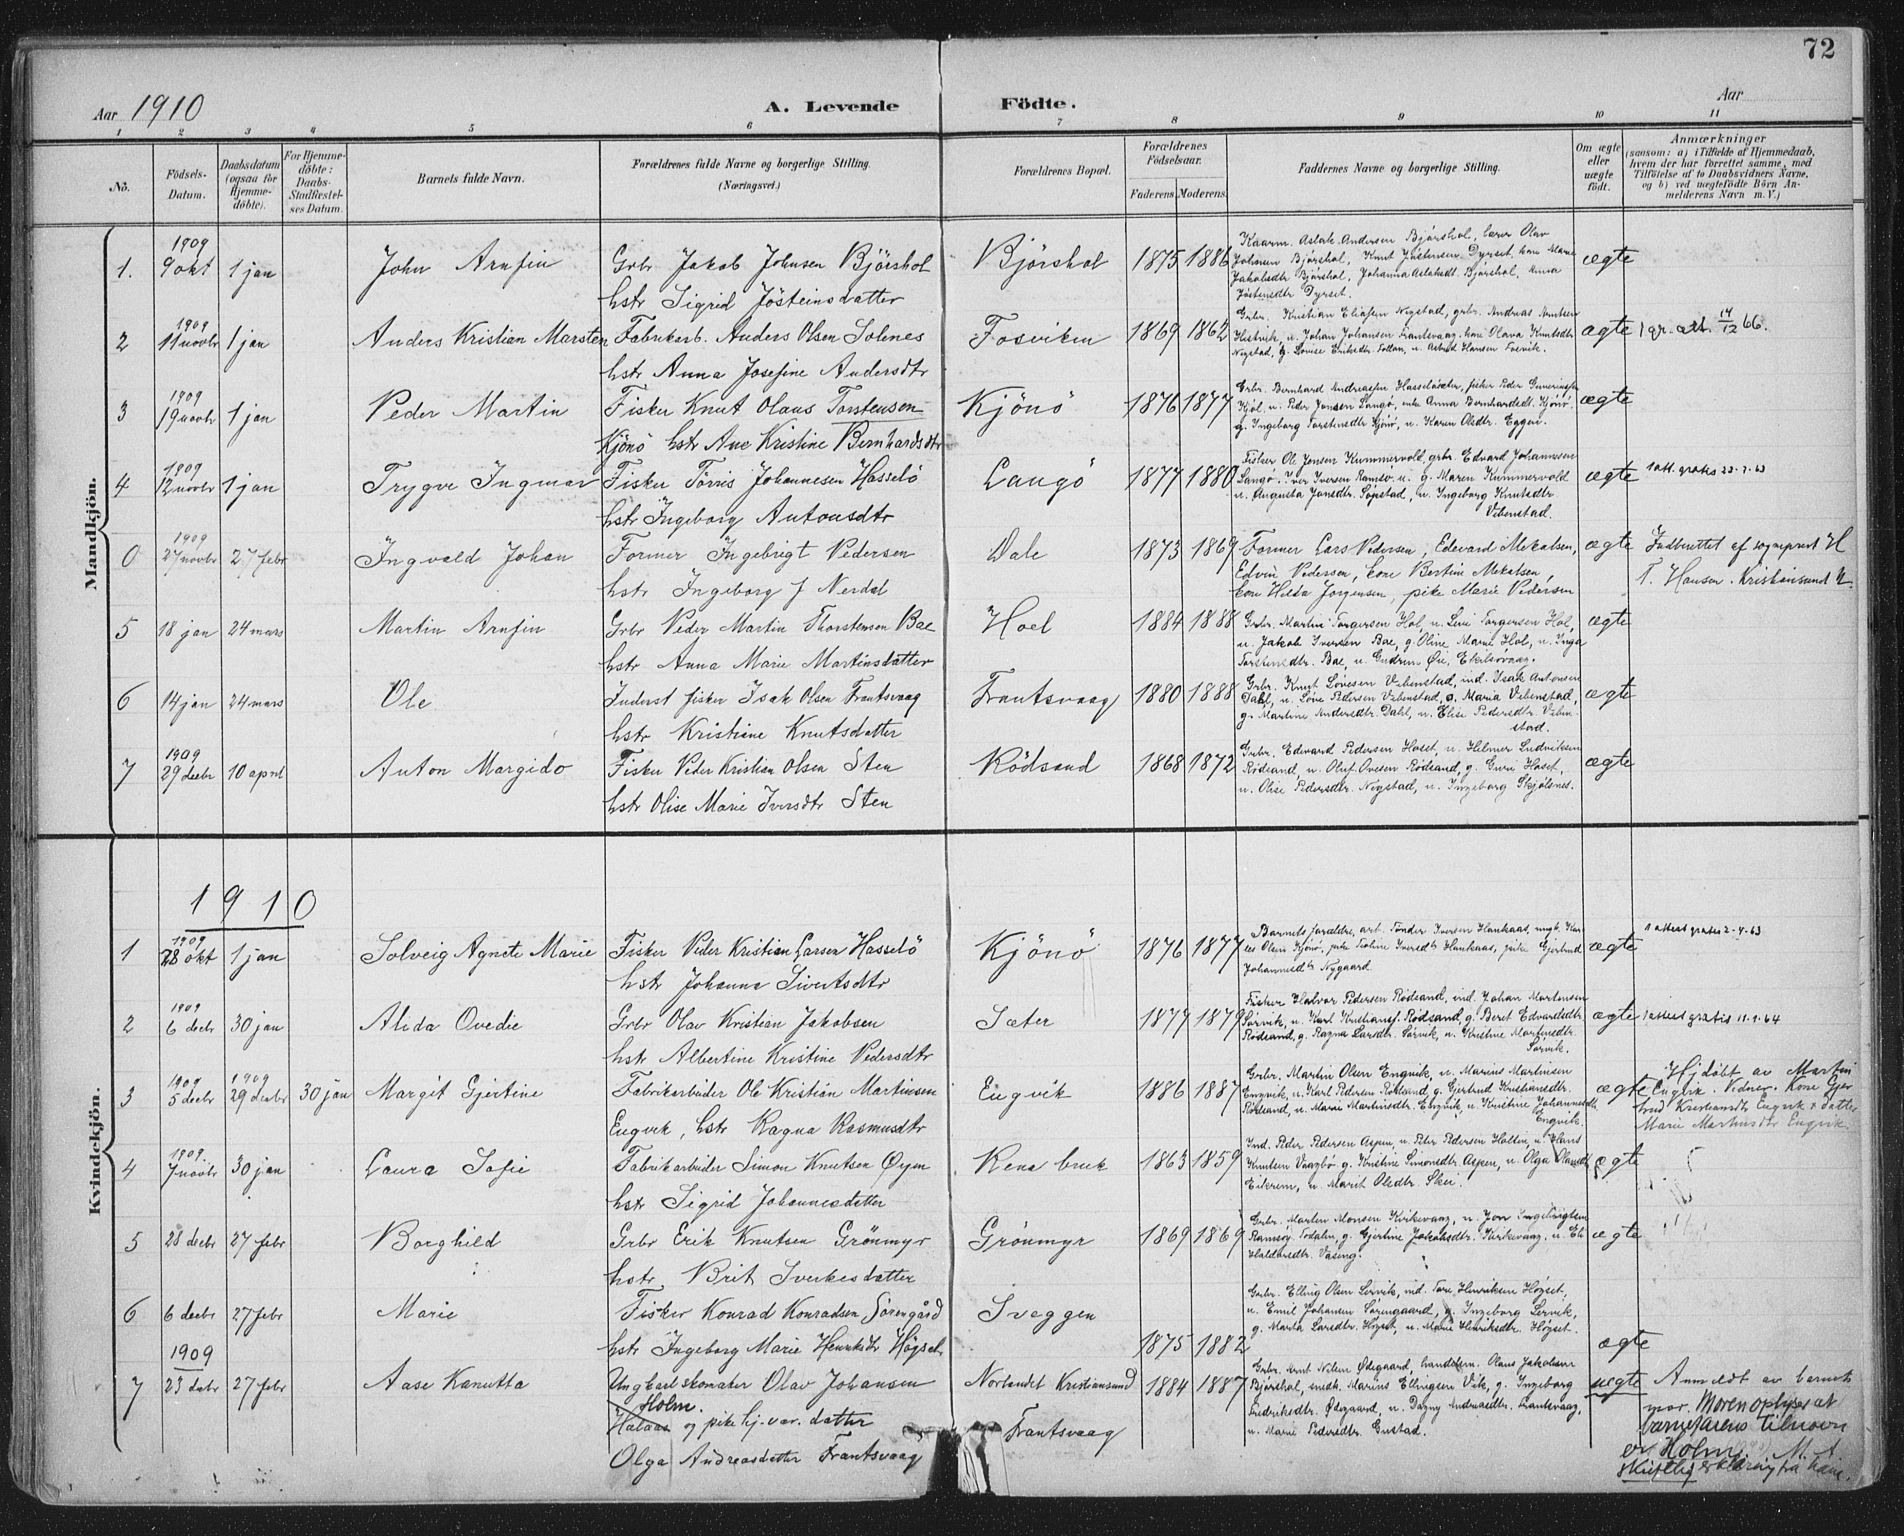 72
Aar 1910
A. Levende Födte.
Aar
1 2 3 4 5 6 7 8 9 10 11
No.
Födsels-Datum.
Daabsdatum (ogsaa for Hjemme-döbte).
For Hjemme-döbte: Daabs-Stadfæstel-ses Datum.
Barnets fulde Navn.
Forældrenes fulde Navne og borgerlige Stilling. (Næringsvei.)
Forældrenes Bopæl.
Forældrenes Födselsaar.
Faderens Moderens
Faddernes Navne og borgerlige Stilling.
Om ægte eller uægte födt.
Anmærkninger
(saasom: a) i Tilfælde af Hjemmedaab,
hvem der har forrettet samme, med
Tilföielse af to Daabsvidners Navne,
og b) ved uægtefödte Börn An-
melderens Navn m. V.)
Mandkjön.
1. 1909 9 okt 1 jan John Arnfin Grbr Jakob Johnsen Björshol Björshol 1875 1886 ægte
hstr Sigrid Jösteinsdatter
Kaarm. Aslak Andersen Bjørshol, lærer Olav
Johnsen Bjørshol, Knut Jöstensen Dyrset, kone Marie
Jakobsdtr Bjørshol, Johanna Aslaksdt Bjørshol, Anna
Jöstensdtr Dyrset.
2 1909 11 novbr 1 jan Anders Kristian Marsten Fabrikarb. Anders Olsen Solnes Fosviken 1869 1862 ægte 1 gr. att. 14/12 66.
hstr Anna Josefine Andersdtr
Grbr. Kristian Eliasen Nigstad, grbr. Andreas Knutsen
3 1909 19 novbr 1 jan Peder Martin Fisker Knut Olaus Torstensen Kjönö 1876 1877 ægte
Kjönö hstr Ane Kristine Bernhardsdtr
g. Ingeborg Torstensdtr Kjönö, u. Karen Olsdtr. Eggen.
4 1909 12 novbr 1 jan Trygve Ingmar Fisker Törris Johannesen Hasselö Langö 1877 1880 ægte 1 att. gratis 23-7-63
hstr Ingeborg Antonsdtr
Fisker Ole Jonsen Kummervold, grbr Edvard Johannesen
Langø, Iver Iversen Ramsø, u. g. Maren Kummervold
u. Augusta Jonsdtr. Søpstad, u. Ingeborg Knutsdtr.
Vebenstad.
0 1909 27 novbr 27 febr Ingvald Johan Former Ingebrigt Pedersen Dale 1873 1869 ægte
hstr Ingeborg f Nerdal
Former Lars Pedersen, Edevard Mekalsen,
Edvin Pedersen, kone Bertine Mekalsen,
kone Hilda Jorgensen, pike Marie Pedersen
Indberettet af sogneprest H
T. Hansen. Kristiansund N.
5 18 jan 24 mars Martin Arnfin Grbr Peder Martin Thorstensen Bae Hoel 1884 1888 ægte
hstr Anna Marie Martinsdatter
Grbr. Martin Torgersen Hol, u. Lini Torgersen Hol,
u. Jakob Iversen Bae, g. Oline Marie Hol, u. Inga
Torstensdtr. Bae, u. Gudrun Øie, Ekilsvaag.
6 14 jan 24 mars Ole Inderst fisker Isak Olsen Frantsvaag Frantsvaag 1880 1888 ægte
hstr Kristiane Knutsdatter
Grbr. Knut Lovesen Vebenstad, ind. Isak Antonsen
Dahl, u. Love Pedersen Vebenstad, g. Maria Vebenstad,
g. Martine Andersdtr. Dahl, u. Elise Pedersdtr. Veben-
stad.
7 1909 29 decbr 10 april Anton Margido Fisker Peder Kristian Olsen Sten Rödsand 1868 1872 ægte
hstr Olise Marie Iversdtr Sten
Grbr. Edevard Pedersen Haset, u. Hilmer Ludviksen
Rødsand, u. Oluf Ovesen Rødsand, g. Guri Haset,
u. Olise Pedersdtr. Nigstad, u. Ingeborg Skjølsnes.
Kvindekjön.
1910
1 1909 28 okt 1 jan Solveig Agnete Marie Fisker Peder Kristian Larsen Hasselö Kjönö 1876 1877 ægte 1 attest gratis 2-4-63
hstr Johanna Sivertsdtr
Barnets forældre, arb. Tønder Iversen Haukaas, ungk. Han-
Johannesdtr Nygaard.
2 1909 6 decbr 30 jan Alida Ovedie Grbr Olav Kristian Jakobsen Sæter 1879 1879 ægte 1 attest gratis 11-1-64
hstr Albertine Kristine Pedersdtr
Fisker Halvor Pedersen Rødsand, ind. Johan Martensen
Sørvik, u. Karl Kristiansf. Rødsand, g. Beret Edvardsdtr.
Rødsand, g. Ragna Larsdtr. Sørvik, u. Kristine Martinsdtr.
Sørvik.
3 1909 5 decbr 1909 29 decbr 30 jan Margit Gjertine Fabrikarbeider Ole Kristian Martinsen Engvik 1886 1887 ægte
Engvik, hstr Ragna Rasmusdtr
Grbr. Martin Olsen Engvik, u. Marius Martinsen
Engvik, u. Karl Pedersen Rødsand, g. Gjertrud Kristiansdtr.
Rødsand, u. Marie Martinsdtr. Engvik, u. Kristine Johannesdtr
Engvik.
Hjdöbt av Martin
Engvik. Vidner. Kone Gjer
trud Kristiansdtr Engvik & datter
Marie Martinsdtr Engvik.
4 1909. 7 novbr 30 jan Laura Sofie Fabrikarbeider Simon Knutsen Öyen Rena bruk 1863 1859 ægte
hstr Sigrid Johannesdatter
Ind. Peder Pedersen Aspen, u. Peter Pedersen Holten, u. Hans
Knutsen Vaagbø g. Kristine Simonsdtr. Aspen, u. Olga Olausdt
Eikrem, u. Marit Olsdtr. Skei.
5 28 decbr 27 febr Borghild Grbr Erik Knutsen Grönmyr Grönmyr 1869 1869 ægte
hstr. Brit Sverkesdatter
Grbr. Marten Monsen Kirkevaag, u. Jon Ingebrigtsen
Ramsøy, Todalen, g. Gjertine Jakobsdtr. Kirkevaag, u. Eli
Haldorsdtr. Vaseng.
6 6 decbr 27 febr Marie Fisker Konrad Konradsen Sörengård Sveggen 1875 1882 ægte
hstr Ingeborg Marie Henriksdtr Högset
Grbr. Elling Olsen Lervik, ind. Tore Henriksen Högset,
u. Emil Johansen Sørengaard, g. Ingeborg Lervik,
g. Marta Larsdtr. Högset, u. Marie Henriksdtr. Högset.
7 1909 23 dcbr 27 febr Aase Kanutta Ungkarl skomaker Olav Johansen Norlandet Kristiansund 1884 1887 uægte
Holm.
Halaas og pike hj.var. datter Frantsvaag
Olga Andreasdatter Frantsvaag
Grbr. Arnt Nilsen Ødegaard, handelsm. Olaus Jakobsen
Bjørshol, smdk. Marius Ellingsen Vik, g. Ingeborg
Fredriksdtr. Ødegaard, u. Dagny Andreasdtr. Frantsvaag,
u. Marie Pedersdtr. Gustad.
Anmeldt av barnets
mor. Moren oplyser at
barnefarens tilnavn
er Holm. M. A.
skriftlig erklæring fra hane.